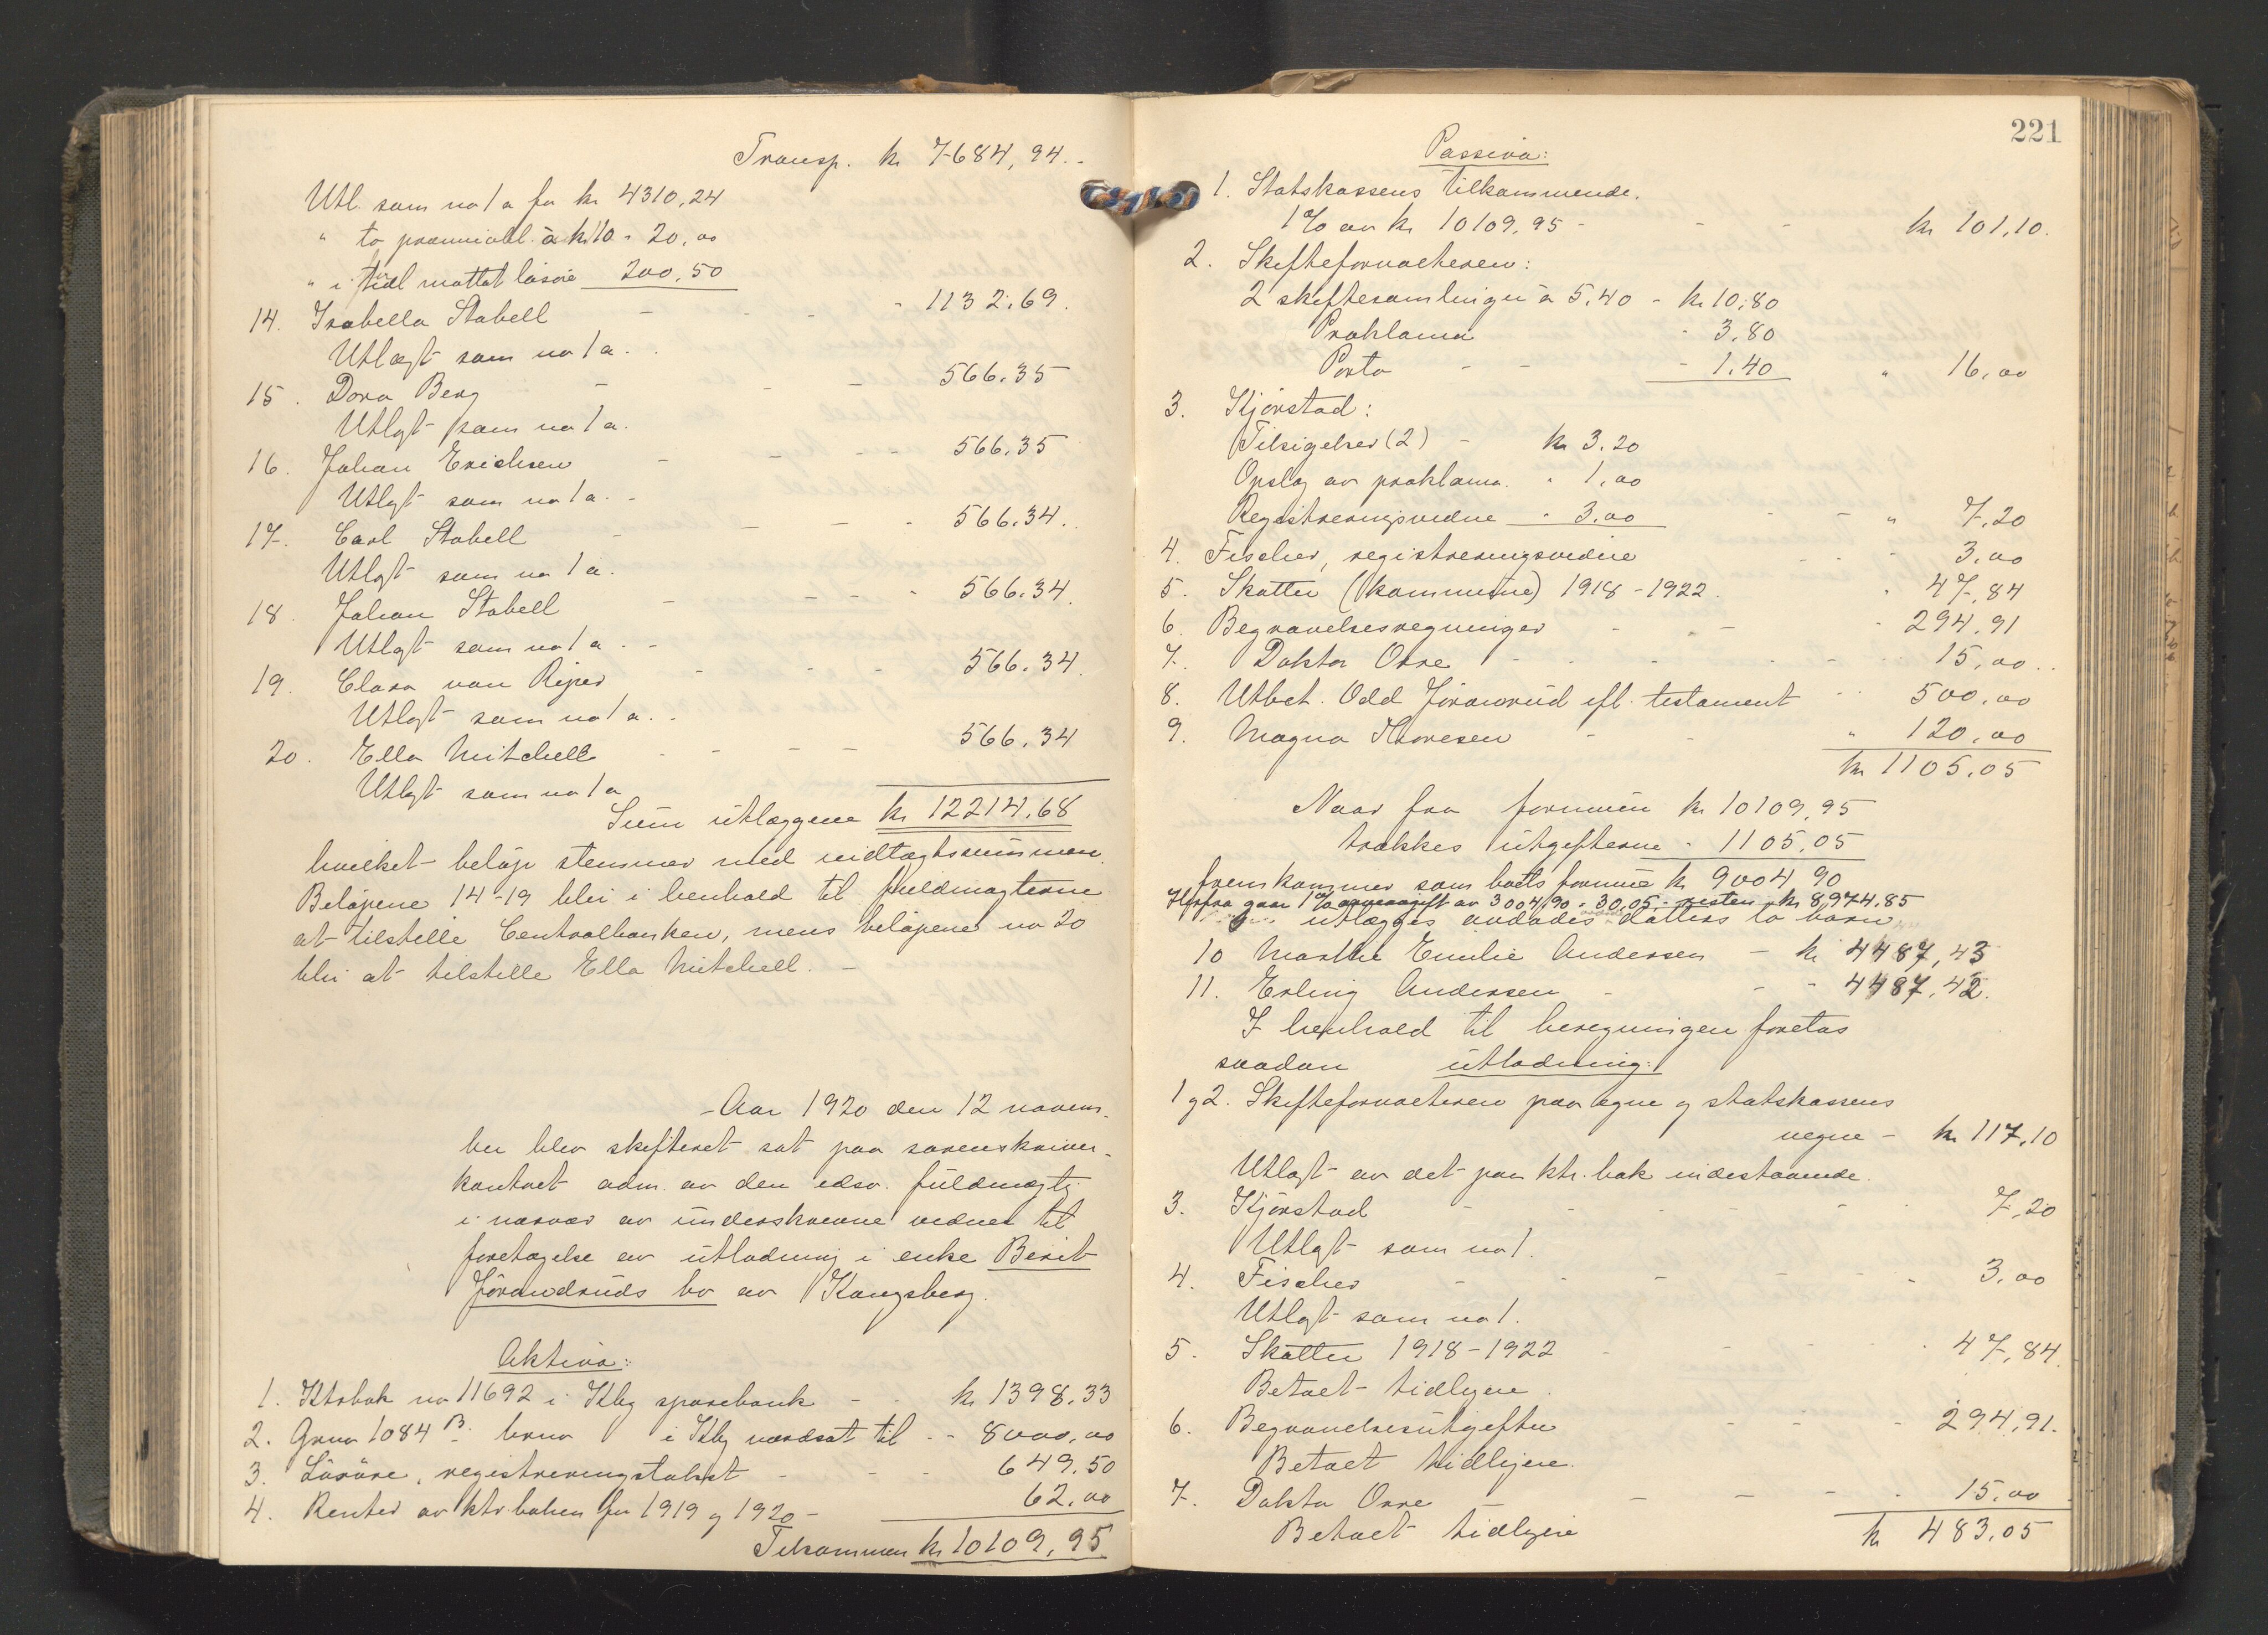 Transp. kr 7684,94.-
Utl. som no 1 a for kr 4310,24
" to præmieobl. à kr 10 - 20,00
" i tidl mottat løsøre 200,50
14. Isabella Stabell - - - - 1132,69.
Utlagt som no 1 a. -
15. Dora Berg - - - 566,35
Utlagt som no 1 a.
16. Johan Erichsen - - - - 566,35
Utlagt som no 1 a. -
17. Carl Stabell - - - - 566,34.
Utlagt som no 1 a.
18. Johan Stabell - - - - 566,34.
Utlagt som no 1 a. -
19. Clara van Riper - - - 566,34.
Utlagt som no 1 a. -
20. Ella Mitchell - - - - 566,34
Utlagt som no 1 a
Sum utlæggene kr 12214,68
hvilket beløp stemmer med indtægtssummen.
Beløpene 14-19 blir i henhold til fuldmagterne
at tilstille Centralbanken, mens beløpene no 20
blir at tilstille Ella Mitchell. -
Aar 1920 den 12 novem-
ber blev skifteret sat paa sorenskriver-
kontoret adm. av den edsv. fuldmægtig
i nærvær av underskrevne vidner til
foretagelse av utlodning i enke Berit
Jørandruds bo av Kongsberg.
Aktiva:
1. Ktrbok no 11692 i Kbg sparebank - - kr 1398,33
2. Grno 1084 B. brno i Kbg værdsat til - - 8000,00
3. Løsøre, registreringstakst - - - 649,50
4. Renter av ktr.boken for 1919 og 1920 - 62,00
Tilsammen kr 10109,95
221
Passiva:
1. Statskassens tilkommende.
1% av kr 10109,95 - - - kr 101,10.
2. Skifteforvalteren:
2 skiftesamlinger à 5,40 - kr 10,80
Proklama - 3,80
Porto - - - 1,40 " 16,00
3. Kjørstad:
Tilsigelser (2) - kr 3,20
Opslag av proklama. " 1,00
Registreringsvidne " 3,00 - - " 7,20
4. Fischer, registreringsvidne - - - 3,00
5. Skatter (kommune) 1918-1922. - 47,84
6. Begravelsesregninger - - - - 294,91
7. Doktor Orre - - - - - 15,00..
8. Utbet. Odd Jøranrud ifl. testament - - 500,00
9. Magna Thoresen - - " 120,00
kr 1105,05
Naar fra formuen kr 10109,95
trækkes utgifterne - 1105,05
fremkommer som boets formue kr 9004 90
Herfra gaar 1% arveavgift av 3004,90 = 30,05 - resten kr 8974,85
utlægges avdødes datters to barn
10 Marthe Emilie Andersen - kr 4487,43
11. Erling Andersen - - - 4487,42.
I henhold til beregningen foretas
saadan utlodning:
1 g 2. Skifteforvalteren paa egne og statskassens
vegne - kr 117,10
Utlagt av det paa ktr.bok indestaaende.
3. Kjørstad - - - - - 7,20
Utlagt som no 1.
4. Fischer - - - - - 3,00
Utlagt som no 1.
5. Skatter 1918-1922 - - - - 47,84.
Betalt tidligere.
6. Begravelsesutgifter - - - 294,91.
Betalt tidligere.
7. Doktor Orre - - - - 15,00
Betalt tidligere kr 483,05